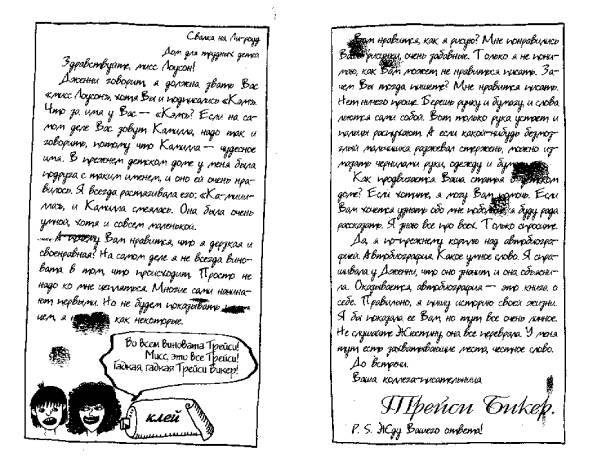 Свалка на Ли-роуд
Дом для трудных детей
Здравствуйте, мисс Лоусон!
Дженни говорит, я должна звать Вас
«мисс Лоусон», хотя Вы и подписались «Кэм».
Что за имя у Вас — «Кэм»? Если на са-
мом деле Вас зовут Камилла, надо так и
говорить, потому что Камилла — чудесное
имя. В прежнем детском доме у меня была
подруга с таким именем, и оно ей очень нра-
вилось. Я всегда растягивала его: «Ка-миии-
лла», и Камилла смеялась. Она была очень
умной, хотя и совсем маленькой.
А почему Вам нравится, что я дерзкая и
своенравная? На самом деле я не всегда вино-
вата в том, что происходит. Просто не
надо ко мне цепляться. Многие сами начина-
ют первыми. Но не будем показывать
чем, я н как некоторые.
Во всем виновата Трейси!
Мисс, это все Трейси!
Гадкая, гадкая Трейси Бикер!
клей
Вам нравится, как я рисую? Мне понравились
Ваши рисунки, очень забавные. Только я не пони-
маю, как Вам может не нравиться писать. За-
чем Вы тогда пишете? Мне нравится писать.
Нет ничего проще. Берешь ручку и бумагу, и слова
льются сами собой. Вот только рука устает и
пальцы распухают. А если какой-нибудь безмоз-
глый мальчишка разжевал стержень, можно из-
мазать чернилами руки, одежду и
Как продвигается Ваша статья о детском
доме? Если хотите, я могу Вам помочь. Если
Вам хочется узнать обо мне побольше, я буду рада
рассказать. Я знаю все про всех. Только спросите.
Да, я по-прежнему корплю над автобиогра-
фией. Автобиография. Какое умное слово. Я спра-
шивала у Дженни, что оно значит, и она объясни-
ла. Оказывается, автобиография — это книга о
себе. Правильно, я пишу историю своей жизни.
Я бы показала ее Вам, но тут все очень личное.
Не слушайте Жюстину, она все переврала. У меня
тут есть захватывающие места, честное слово.
До встречи.
Ваша коллега-писательница
Трейси Бикер.
P. S. Жду Вашего ответа!